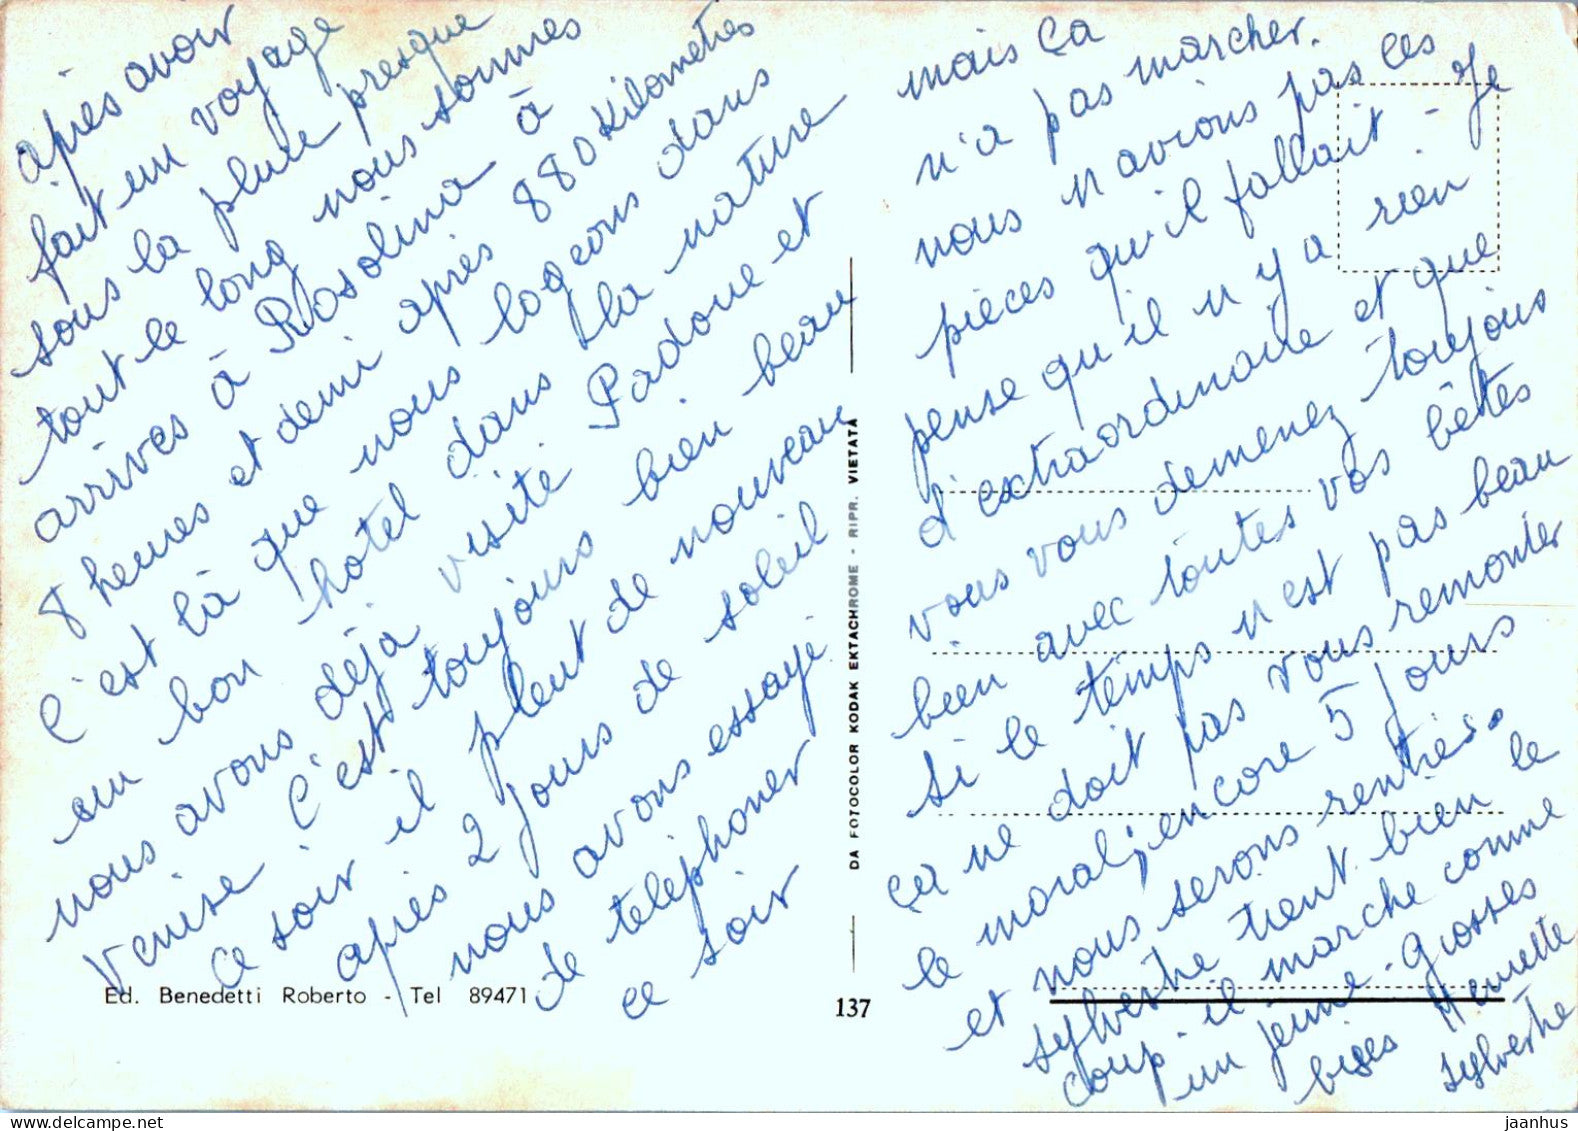 après avoir
fait un voyage
sous la pluie presque
tout le long nous sommes
arrivés à Rosolina à
8 heures et demi après 880 Kilometres
c'est là que nous logeons dans
un bon hôtel dans la nature
nous avons déjà visité Padoue et
Venise c'est toujours bien beau
ce soir il pleut de nouveau
après 2 jours de soleil
nous avons essayé
de téléphoner
ce soir
mais ça
n'a pas marcher.
nous n'avions pas les
pièces qu'il fallait - Je
pense qu'il n'y a rien
d'extraordinaire et que
vous vous demenez toujours
bien avec toutes vos bêtes
si le temps n'est pas beau
ça ne doit pas vous remonter
le moral; encore 5 jours
et nous serons rentrés.
sylvestre tient bien le
coup - il marche comme
un jeune - Grosses
bises Henriette
sylvestre
DA FOTOCOLOR KODAK EKTACHROME - RIPR. VIETATA
Ed. Benedetti Roberto - Tel 89471
137
www.delcampe.net
jaanhus